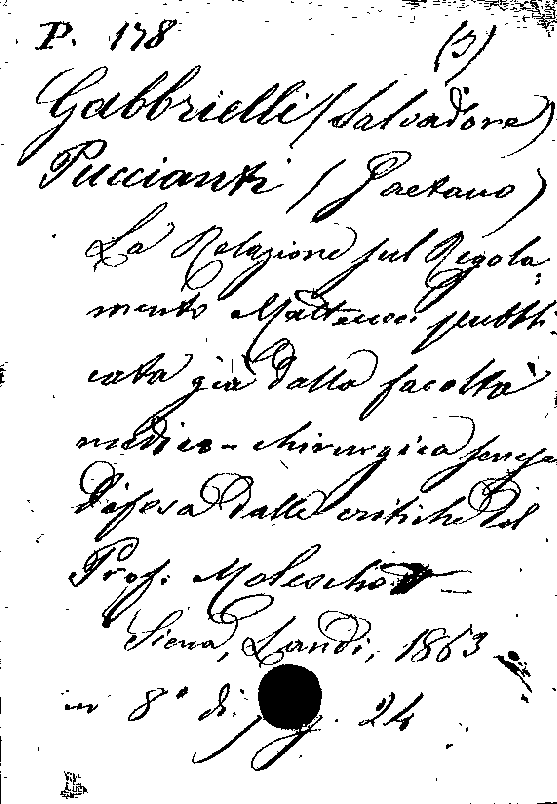 P. 178 (3)
Gabbrielli (Salvadore)
Puccianti (Gaetano)
La Relazione sul Regola-
mento Matteucci pubbli-
cata già dalla facoltà
medico-chirurgica senese
Difesa dalle critiche del
Prof. Moleschott
Siena, Landi, 1863
in 8° di pag. 24